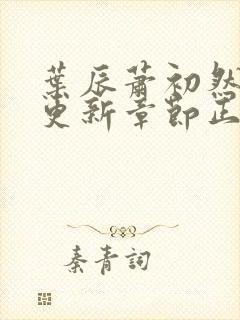 葉辰蕭初然
更新章節正
秦青詞